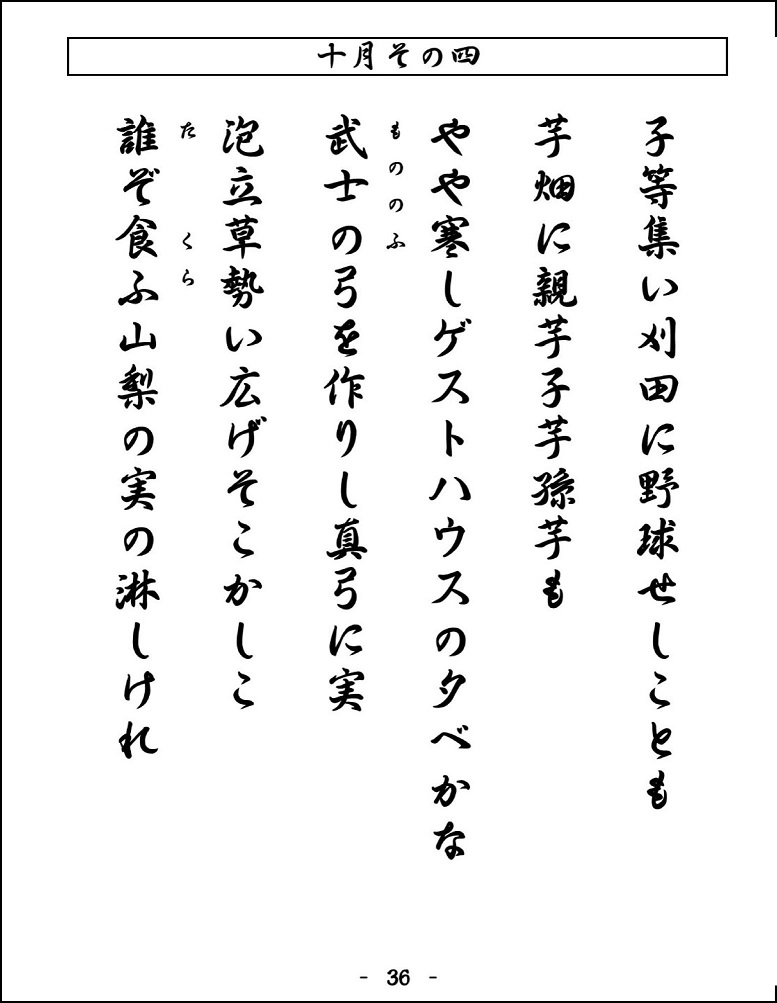 十月その四
子等集い刈田に野球せしことも
芋畑に親芋子芋孫芋も
やや寒しゲストハウスの夕べかな
もののふ
武士の弓を作りし真弓に実
泡立草勢い広げそこかしこ
た くら
誰ぞ食ふ山梨の実の淋しけれ
- 36 -